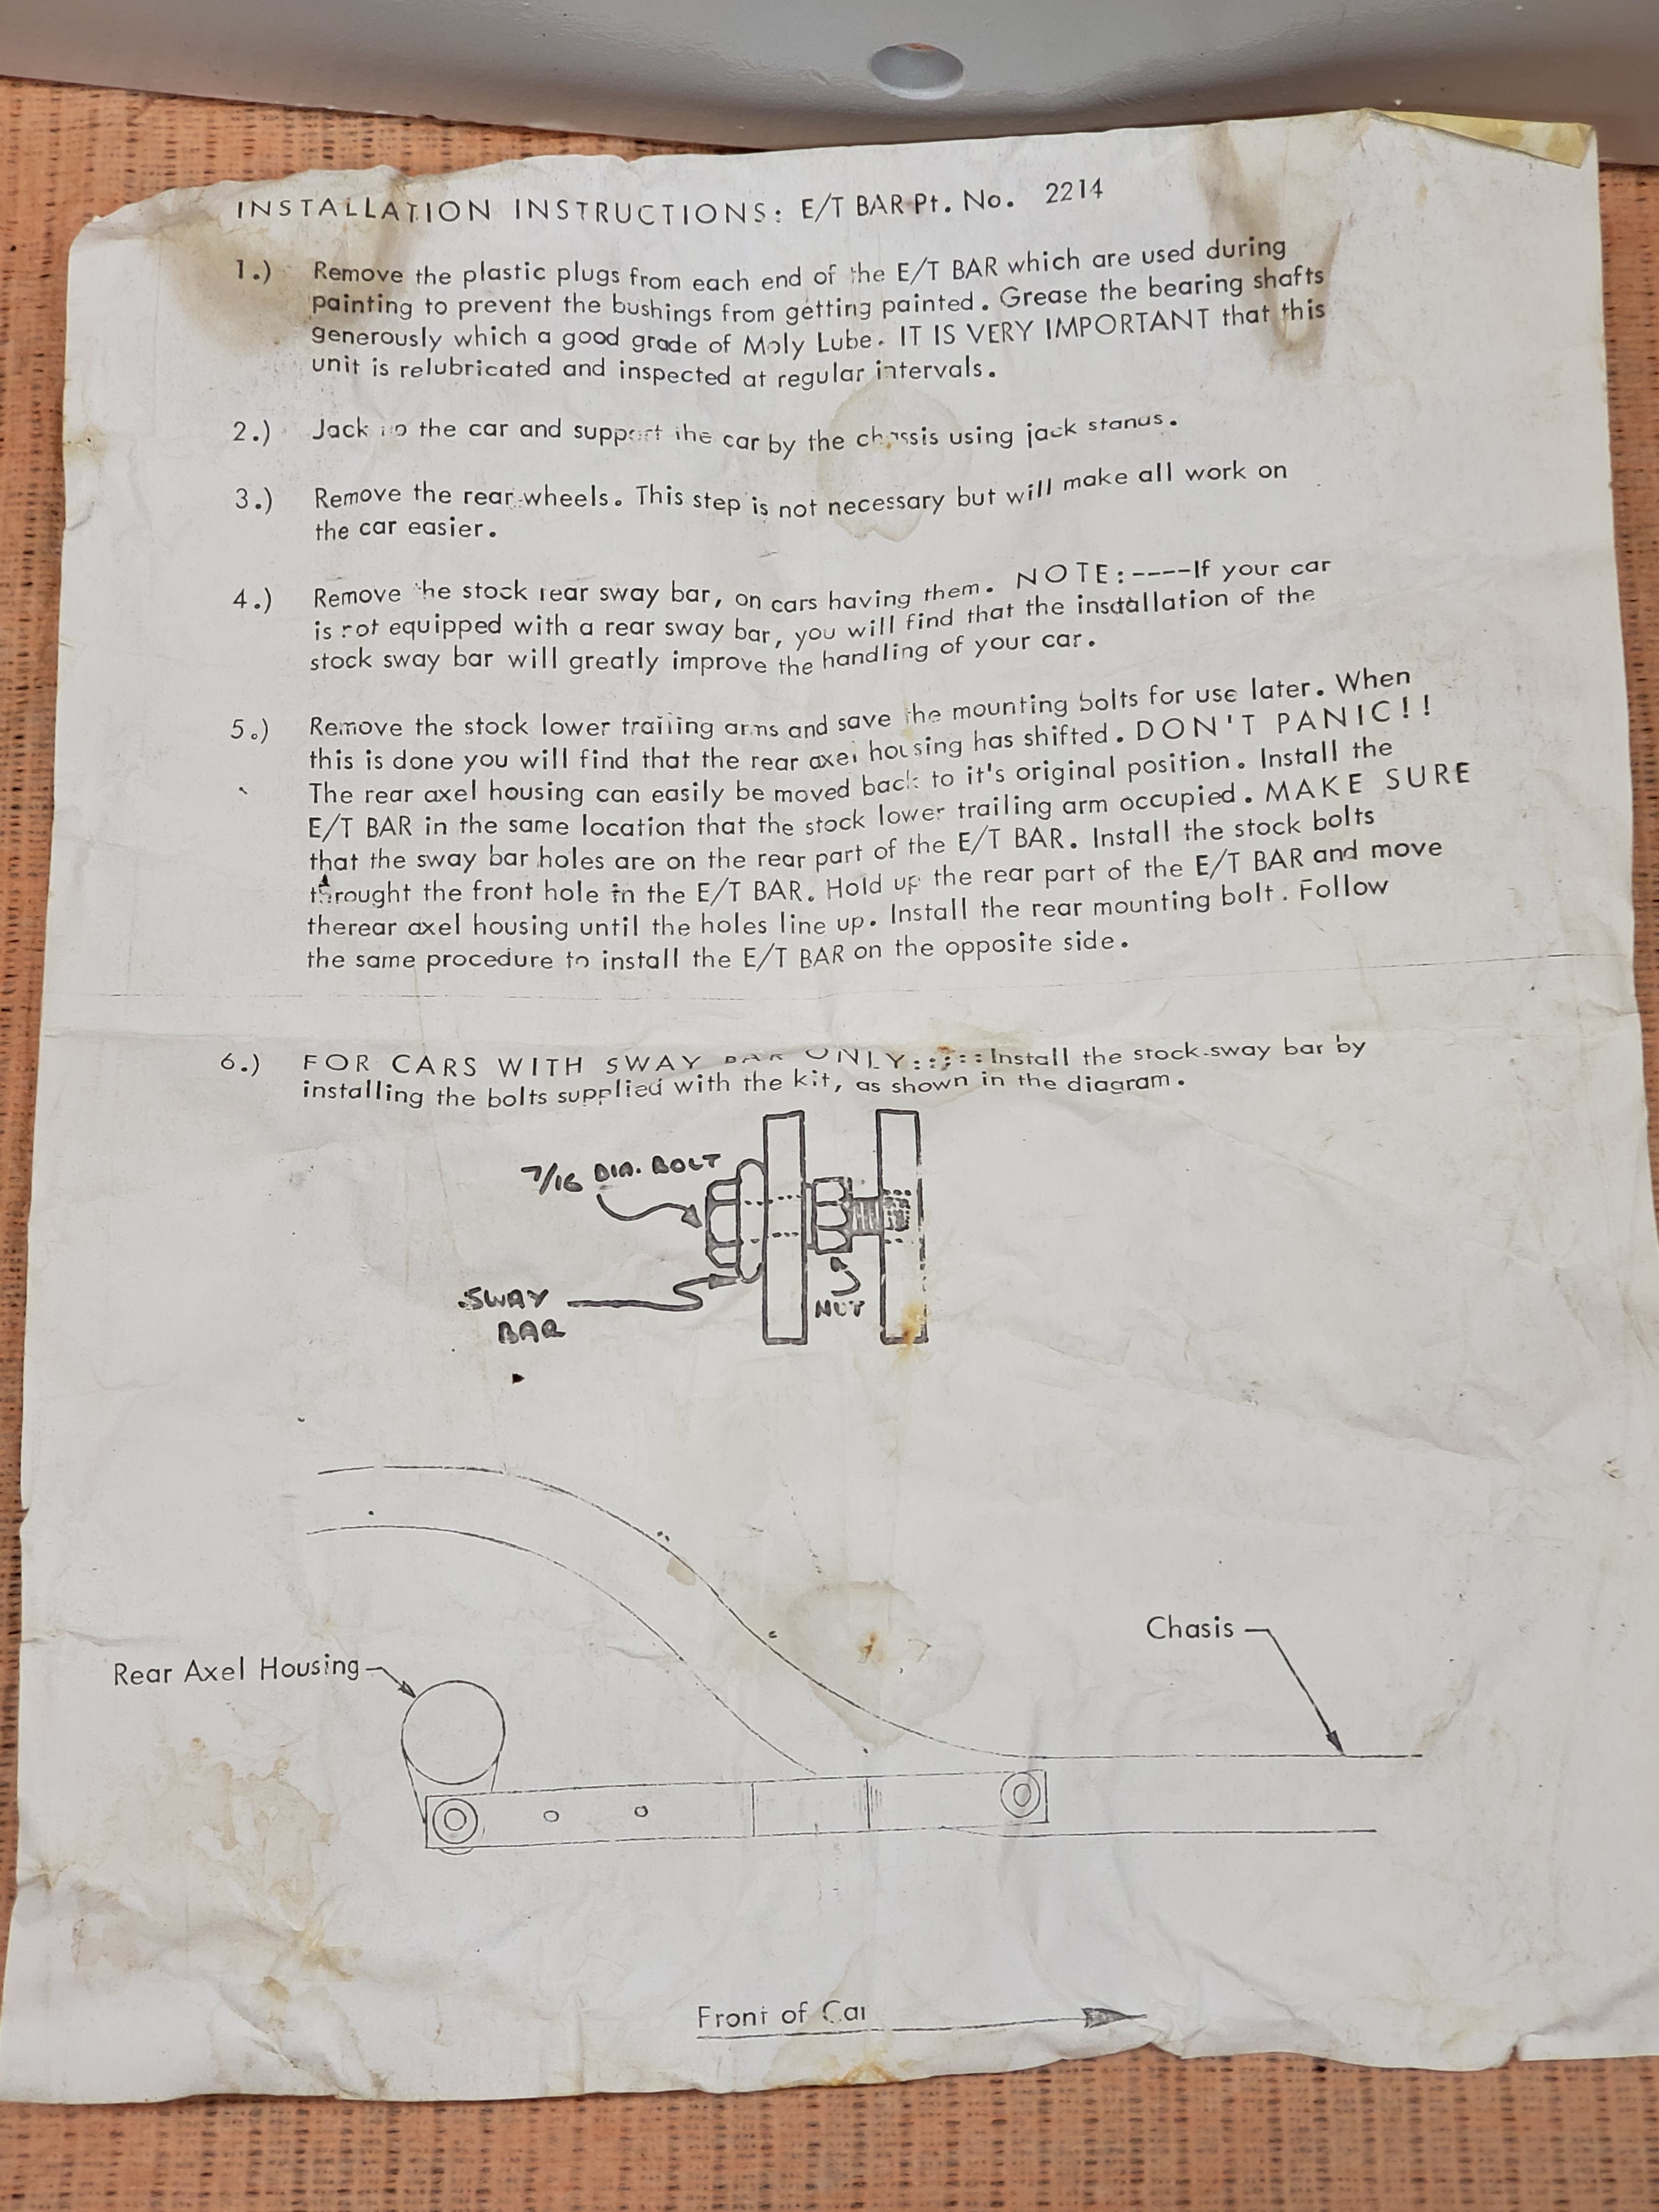 INSTALLATION INSTRUCTIONS: E/T BAR Pt. No. 2214
1.) Remove the plastic plugs from each end of the E/T BAR which are used during
painting to prevent the bushings from getting painted. Grease the bearing shafts
generously which a good grade of Moly Lube. IT IS VERY IMPORTANT that this
unit is relubricated and inspected at regular intervals.
2.) Jack up the car and support the car by the chassis using jack stands.
3.) Remove the rear wheels. This step is not necessary but will make all work on
the car easier.
4.) Remove the stock rear sway bar, on cars having them. NOTE:----If your car
is not equipped with a rear sway bar, you will find that the insdtallation of the
stock sway bar will greatly improve the handling of your car.
5.) Remove the stock lower trailing arms and save the mounting bolts for use later. When
this is done you will find that the rear axel housing has shifted. DON'T PANIC!!
The rear axel housing can easily be moved back to it's original position. Install the
E/T BAR in the same location that the stock lower trailing arm occupied. MAKE SURE
that the sway bar holes are on the rear part of the E/T BAR. Install the stock bolts
throught the front hole in the E/T BAR. Hold up the rear part of the E/T BAR and move
therear axel housing until the holes line up. Install the rear mounting bolt. Follow
the same procedure to install the E/T BAR on the opposite side.
6.) FOR CARS WITH SWAY BAR ONLY::::::Install the stock-sway bar by
installing the bolts supplied with the kit, as shown in the diagram.
7/16 DIA. BOLT
SWAY
BAR
NUT
Chasis
Rear Axel Housing
Front of Car